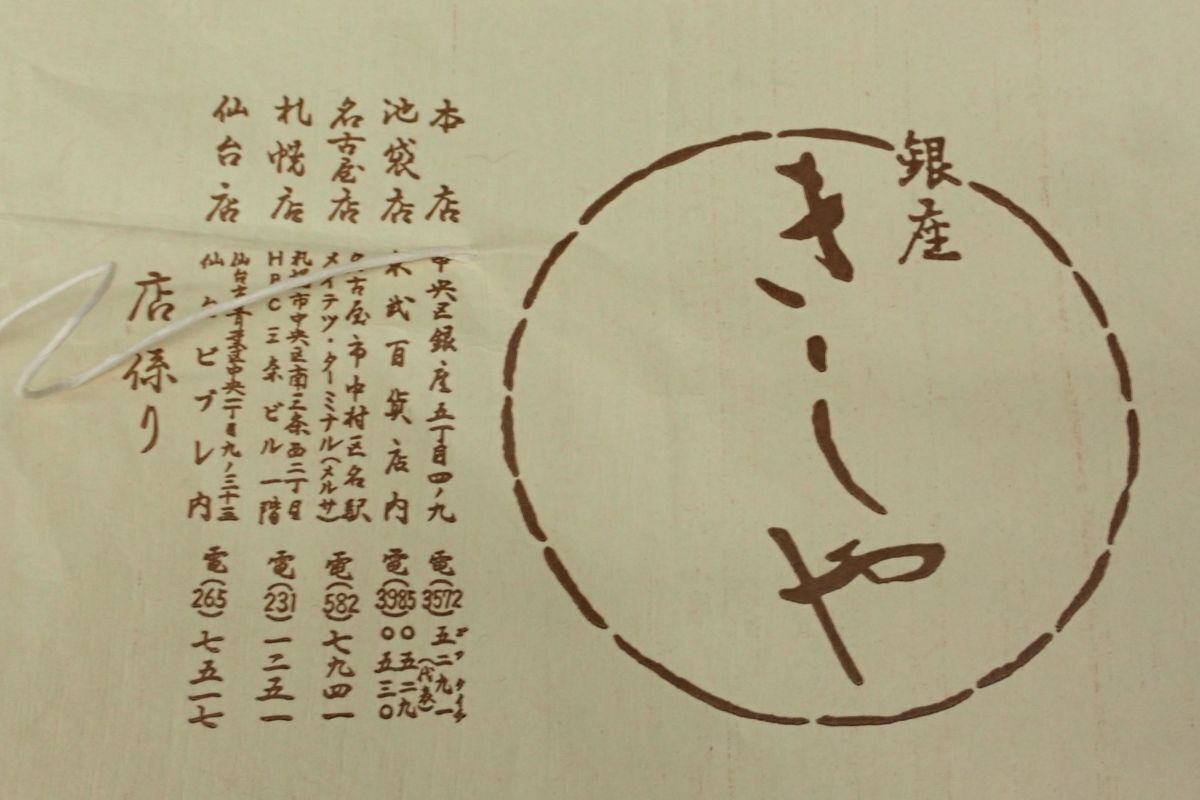 銀座
きしや
本店 中央区銀座五丁目四ノ九 電(3572)五二九一(代表)
池袋店 東武百貨店内 電(3985)〇五二九 〇五三〇
名古屋店 名古屋市中村区名駅 メイテツ・ターミナル(メルサ) 電(582)七九四一
札幌店 札幌市中央区南三条西二丁目 HBC三条ビル一階 電(231)一二五一
仙台店 仙台市青葉区中央一丁目九ノ三十三 仙台ビブレ内 電(265)七五一七
店係り